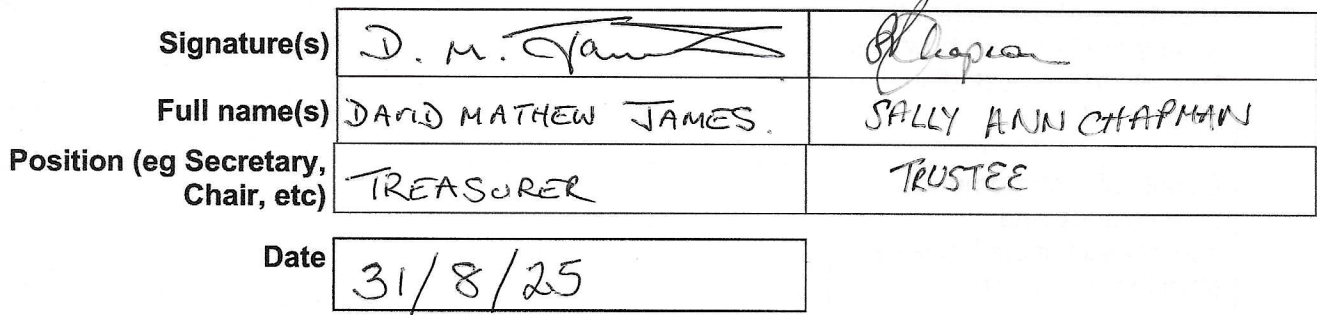 Signature(s) D. M. James S A Chapman
Full name(s) DAVID MATHEW JAMES. SALLY ANN CHAPMAN
Position (eg Secretary, TREASURER TRUSTEE
Chair, etc)
Date 31/8/25